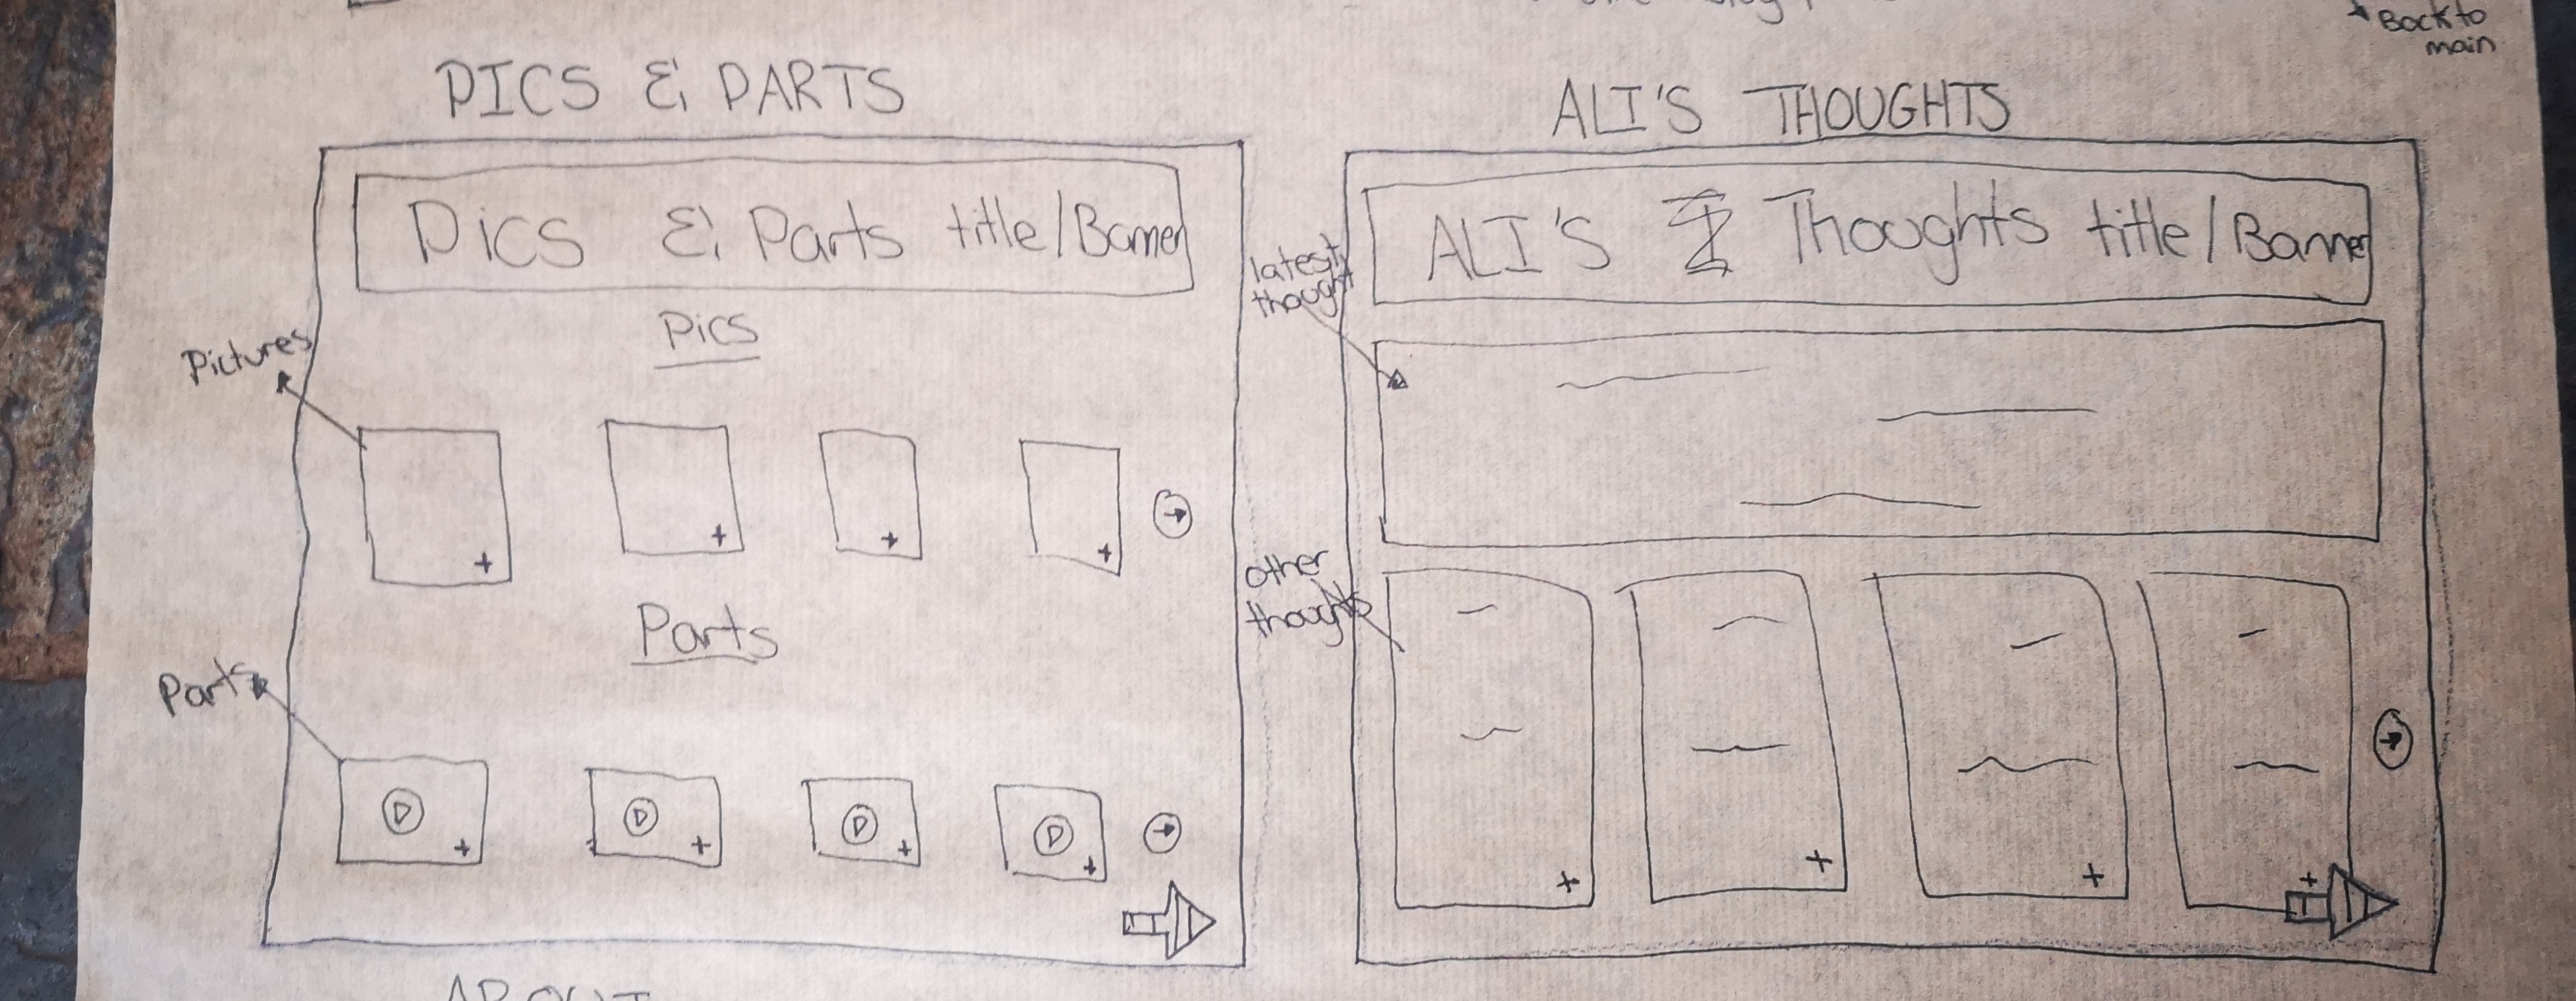 Back to
main
PICS & PARTS
Pics & Parts title/Banner
Pics
Pictures
Parts
Parts
ALI'S THOUGHTS
ALI'S Thoughts title/Banner
latest
thought
other
thoughts
ABOUT